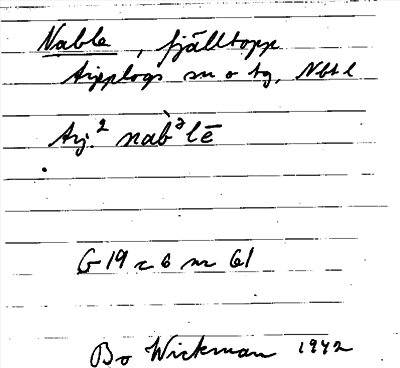 Nable, fjälltopp
Arjeplogs sn o tg, Nbt l
Arj.² nab̀ᵊlē
G 19 c 6 nr 61
Bo Wickman 1942